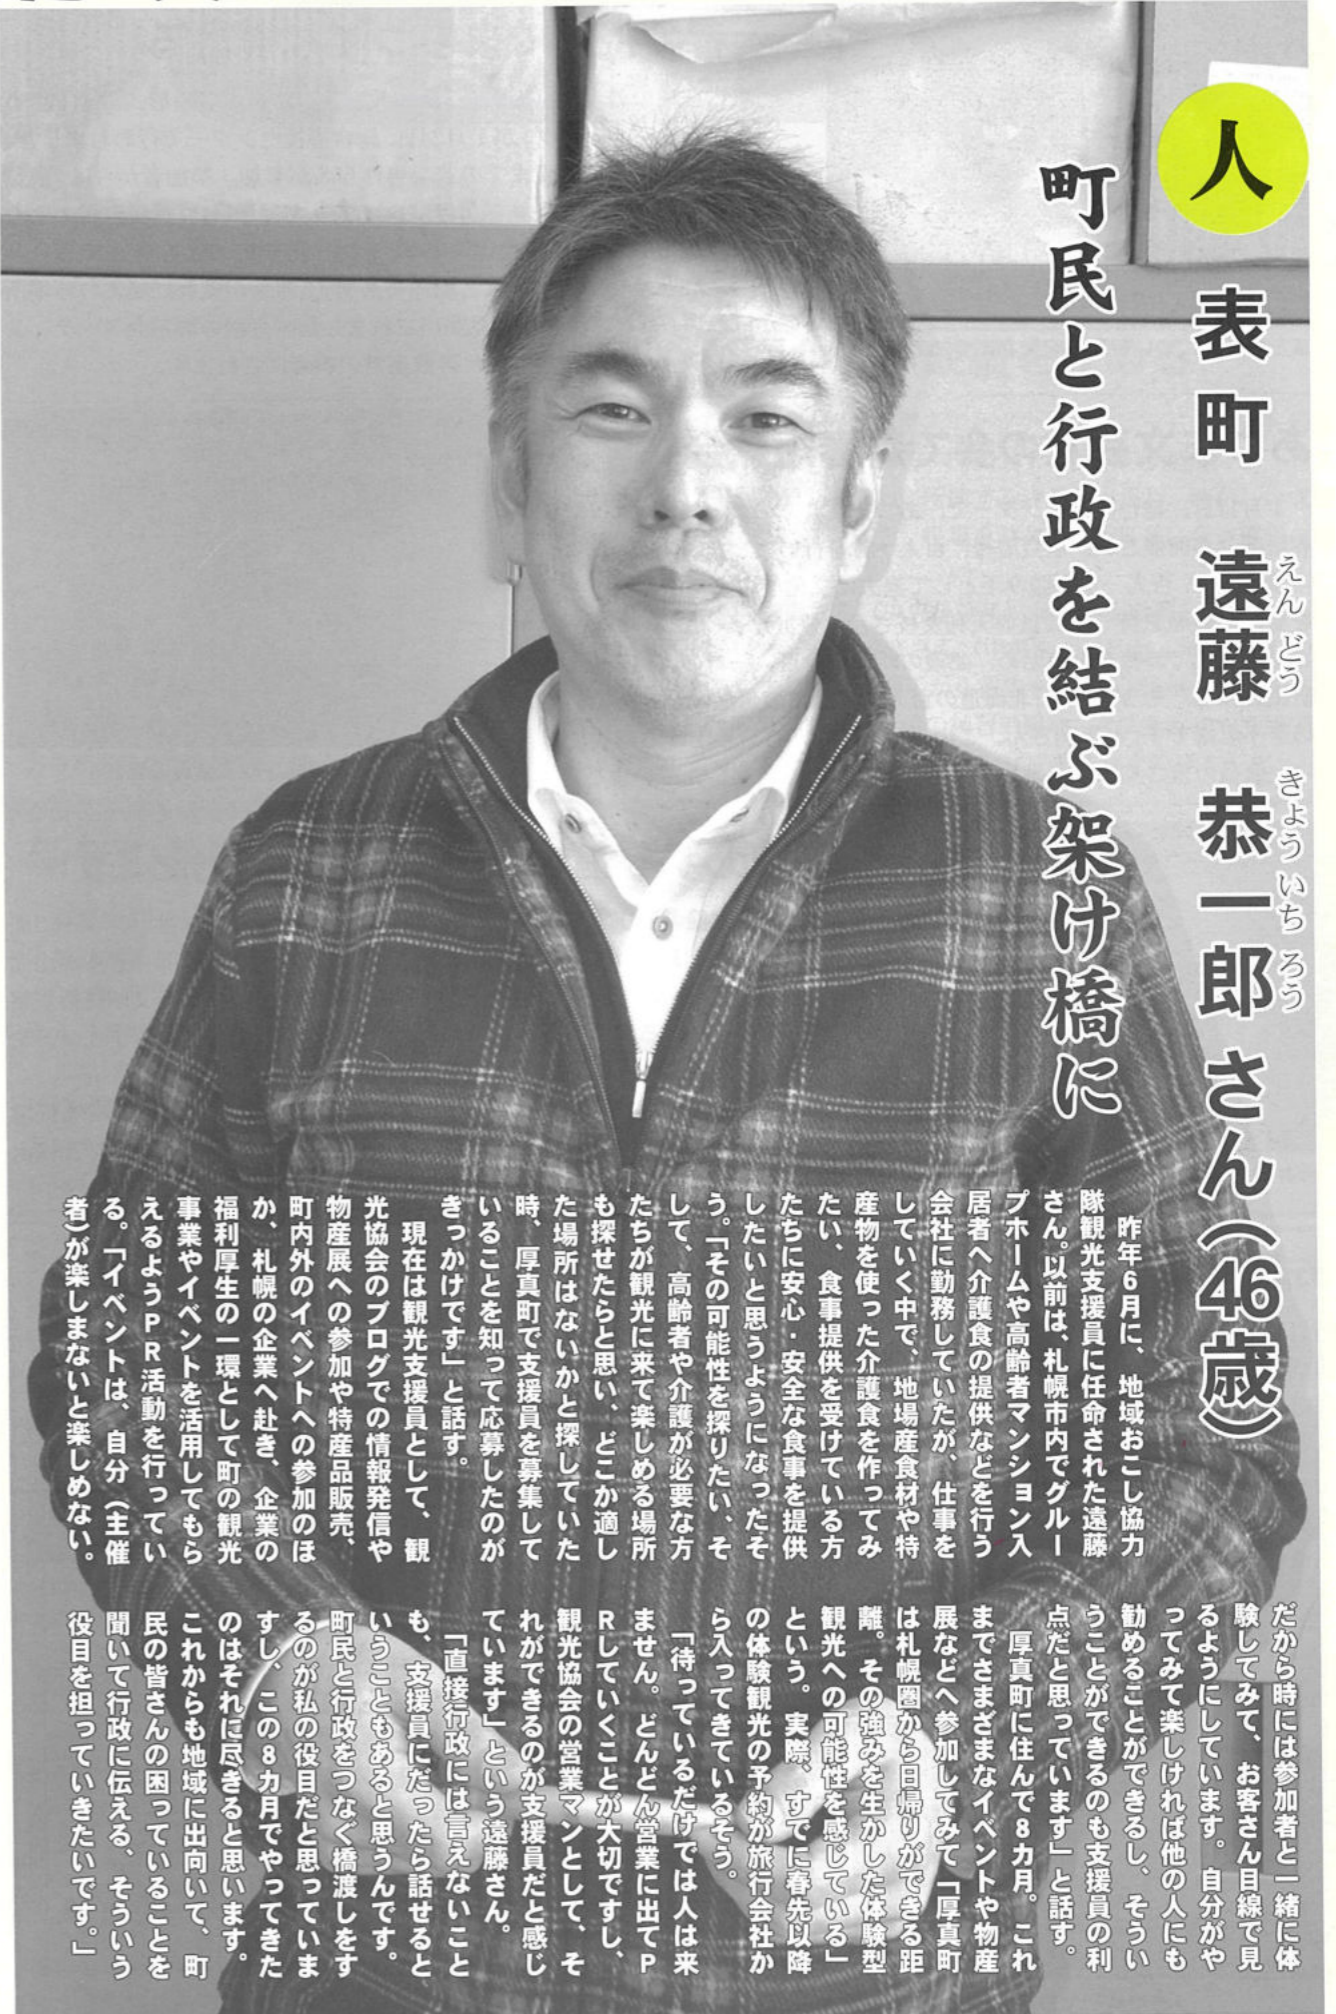 人
表町 遠藤 恭一郎さん(46歳)
えん どう きょう いち ろう
町民と行政を結ぶ架け橋に
昨年6月に、地域おこし協力
隊観光支援員に任命された遠藤
さん。以前は、札幌市内でグルー
プホームや高齢者マンション入
居者へ介護食の提供などを行う
会社に勤務していたが、仕事を
していく中で、地場産食材や特
産物を使った介護食を作ってみ
たい、食事提供を受けている方
たちに安心・安全な食事を提供
したいと思うようになったそ
う。「その可能性を探りたい、そ
して、高齢者や介護が必要な方
たちが観光に来て楽しめる場所
も探せたらと思い、どこか適し
た場所はないかと探していた
時、厚真町で支援員を募集して
いることを知って応募したのが
きっかけです」と話す。
現在は観光支援員として、観
光協会のブログでの情報発信や
物産展への参加や特産品販売、
町内外のイベントへの参加のほ
か、札幌の企業へ赴き、企業の
福利厚生の一環として町の観光
事業やイベントを活用してもら
えるようPR活動を行ってい
る。「イベントは、自分(主催
者)が楽しまないと楽しめない。
だから時には参加者と一緒に体
験してみて、お客さん目線で見
るようにしています。自分がや
ってみて楽しければ他の人にも
勧めることができるし、そうい
うことができるのも支援員の利
点だと思っています」と話す。
厚真町に住んで8カ月。これ
までさまざまなイベントや物産
展などへ参加してみて「厚真町
は札幌圏から日帰りができる距
離。その強みを生かした体験型
観光への可能性を感じている」
という。実際、すでに春先以降
の体験観光の予約が旅行会社か
ら入ってきているそう。
「待っているだけでは人は来
ません。どんどん営業に出てP
Rしていくことが大切ですし、
観光協会の営業マンとして、そ
れができるのが支援員だと感じ
ています」という遠藤さん。
「直接行政には言えないこと
も、支援員にだったら話せると
いうこともあると思うんです。
町民と行政をつなぐ橋渡しをす
るのが私の役目だと思っていま
すし、この8カ月でやってきた
のはそれに尽きると思います。
これからも地域に出向いて、町
民の皆さんの困っていることを
聞いて行政に伝える、そういう
役目を担っていきたいです。」